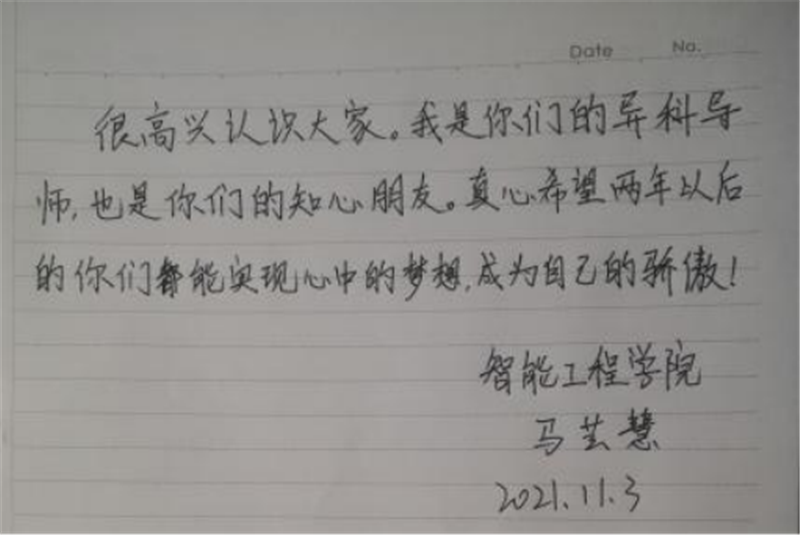 Date No.
很高兴认识大家。我是你们的异科导
师,也是你们的知心朋友。真心希望两年以后
的你们都能实现心中的梦想,成为自己的骄傲!
智能工程学院
马芸慧
2021.11.3